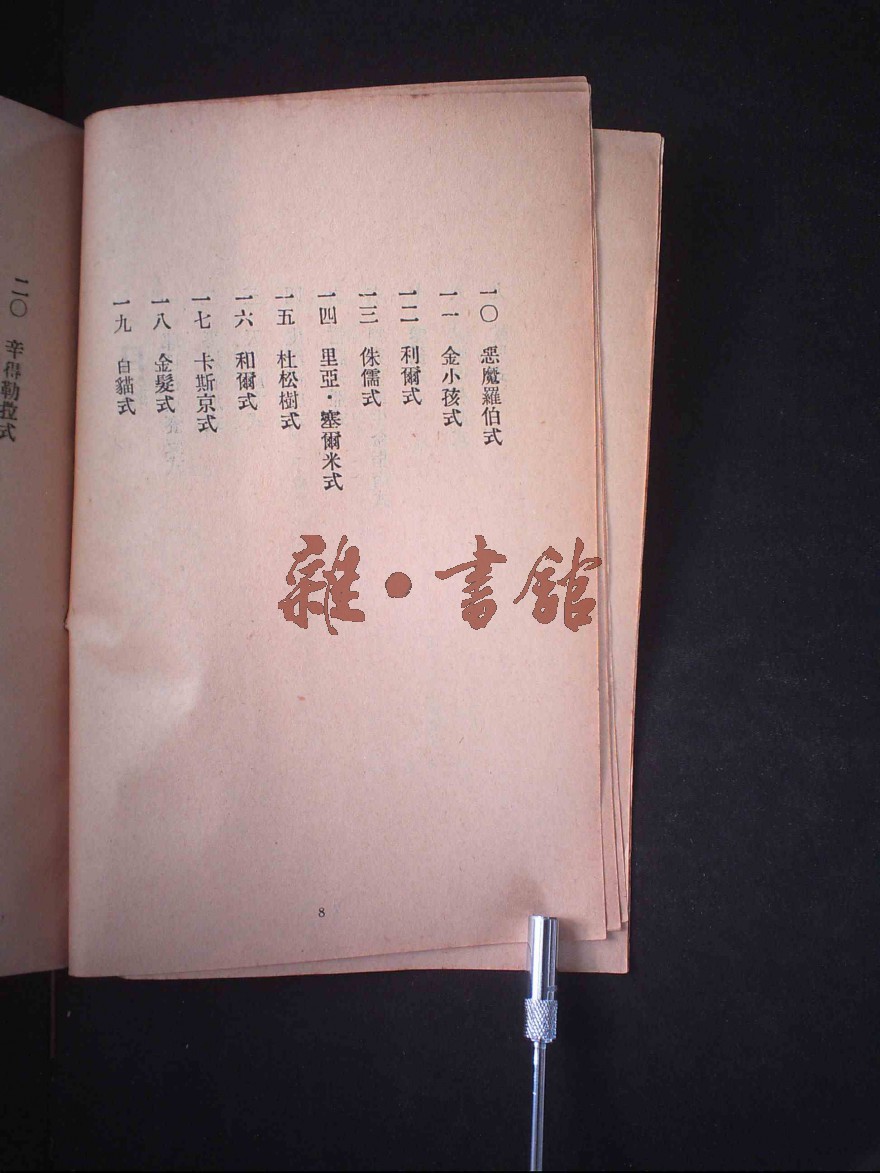 一〇　惡魔羅伯式
一一　金小孩式
一二　利爾式
一三　侏儒式
一四　里亞·塞爾米式
一五　杜松樹式
一六　和爾式
一七　卡斯京式
一八　金髮式
一九　白貓式
8
二〇　辛得勒拉式
雜·書館